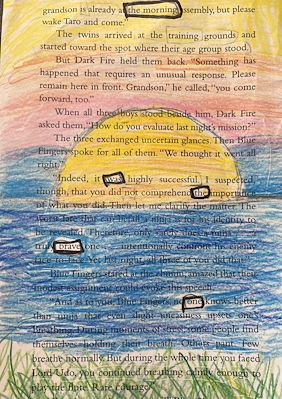 grandson is already at the morning assembly, but please
wake Taro and come."
The twins arrived at the training grounds and
started toward the spot where their age group stood.
But Dark Fire held them back. "Something has
happened that requires an unusual response. Please
remain here in front. Grandson," he called, "you come
forward, too."
When all three boys stood beside him, Dark Fire
asked them, "How do you evaluate last night's mission?"
The three exchanged uncertain glances. Then Blue
Fingers spoke for all of them. "We thought it went all
right."
"Indeed, it was highly successful. I suspected,
though, that you did not comprehend the importance
of what you did. Then let me clarify the matter. The
worst fate that can befall a ninja is for his identity to
be revealed. Therefore, only rarely does a ninja
truly brave one intentionally confront his enemy
face-to-face. Yet last night, all three of you did that."
Blue Fingers stared at the chunin, amazed that their
modest assignment could evoke this speech.
"And as to you, Blue Fingers, no one knows better
than ninja that even slight uneasiness upsets one's
breathing. During moments of stress, some people find
themselves holding their breath. Others pant. Few
breathe normally. But during the whole time you faced
Lord Udo, you continued breathing calmly enough to
play the flute. Rare courage."